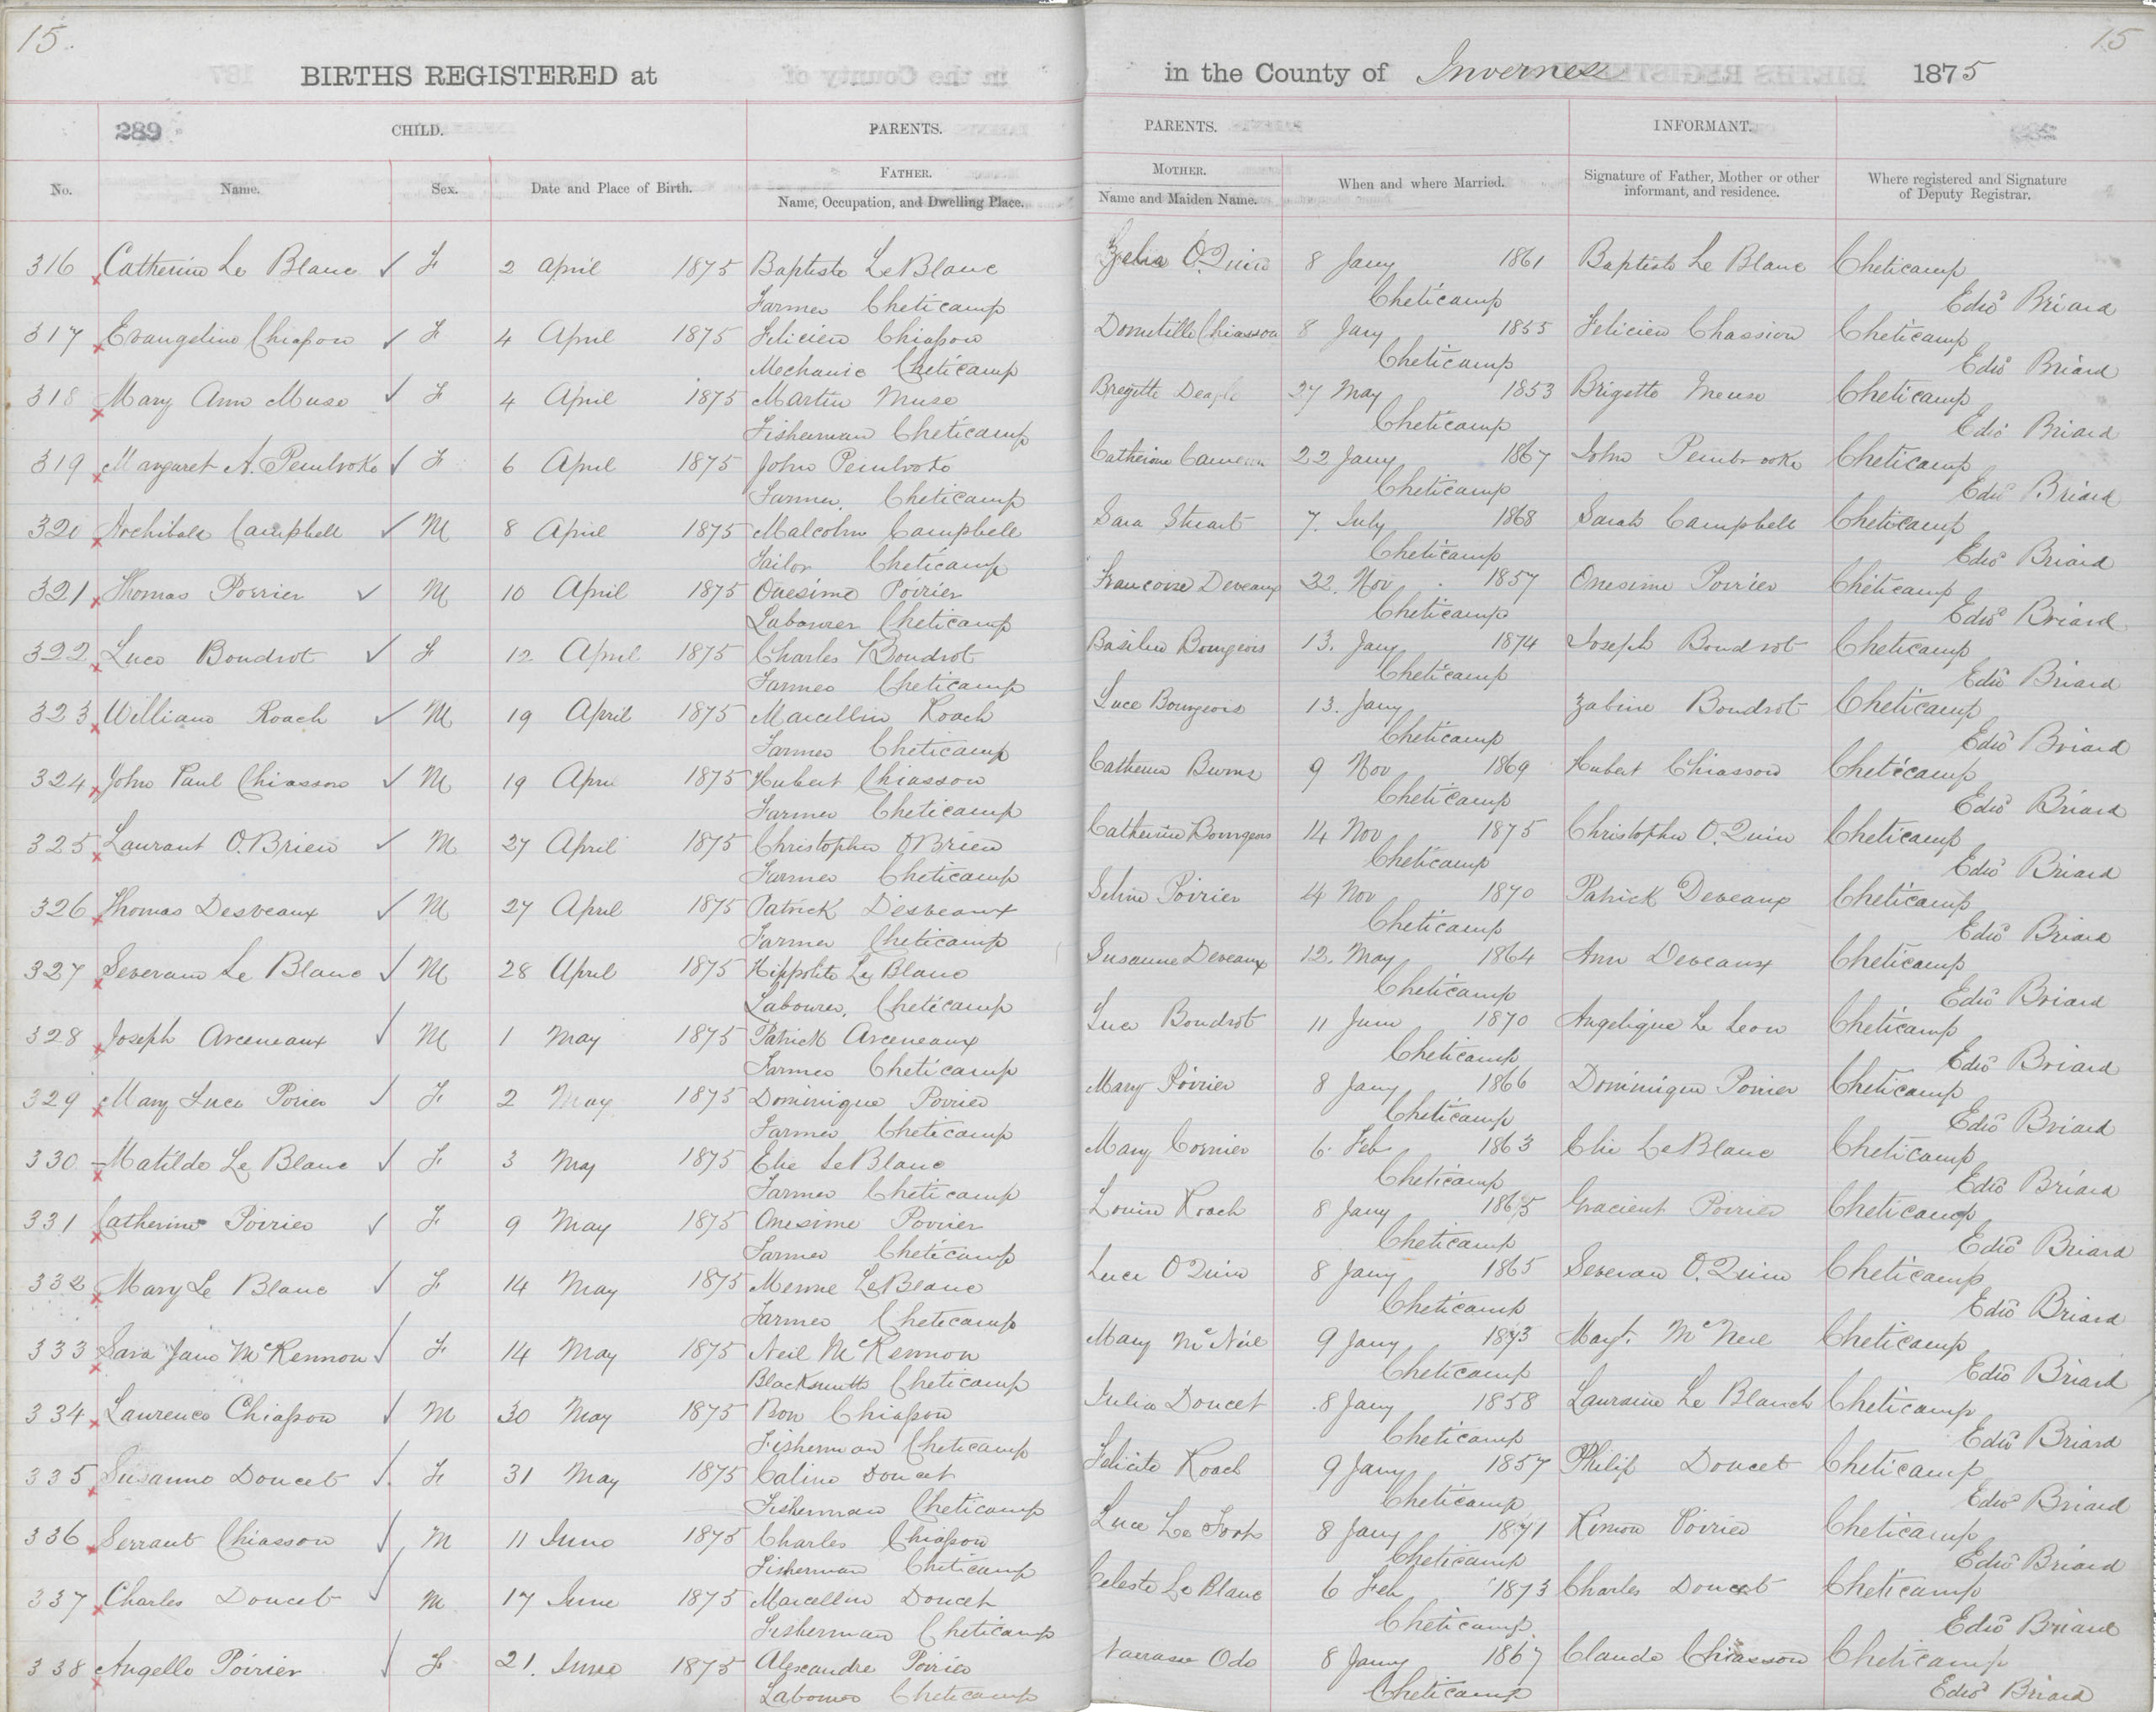 15.
15
BIRTHS REGISTERED at in the County of Inverness 1875
289 CHILD. PARENTS. PARENTS. INFORMANT.
No. Name. Sex. Date and Place of Birth. FATHER. Name, Occupation, and Dwelling Place. MOTHER. Name and Maiden Name. When and where Married. Signature of Father, Mother or other informant, and residence. Where registered and Signature of Deputy Registrar.
316 Catherine Le Blanc ✓ F 2 April 1875 Baptiste LeBlanc O.Quin 8 Jany 1861 Baptiste Le Blanc Cheticamp
Farmer Cheticamp Cheticamp Edwd Briard
317 Evangeline Chiasson ✓ F 4 April 1875 Felicien Chiasson Dometille Chiasson 8 Jany 1855 Felicien Chassion Cheticamp
Mechanic Cheticamp Cheticamp Edwd Briard
318 Mary Ann Muse ✓ F 4 April 1875 Martin Muse Bregitte Deagle 27 May 1853 Brigette Meuse Cheticamp
Fisherman Cheticamp Cheticamp Edwd Briard
319 Margaret A. Pembroke ✓ F 6 April 1875 John Pembroke Catherine Cameron 22 Jany 1867 John Pembrooke Cheticamp
Farmer. Cheticamp Cheticamp Edwd Briard
320 Archibald Campbell ✓ M 8 April 1875 Malcolm Campbell Sara Stuart 7. July 1868 Sarah Campbell Cheticamp
Tailor Cheticamp Cheticamp Edwd Briard
321 Thomas Poirier ✓ M 10 April 1875 Onesime Poirier Francoise Deveaux 22. Nov 1857 Onesime Poirier Cheticamp
Labourer Cheticamp Cheticamp Edwd Briard
322 Luce Boudrot ✓ F 12 April 1875 Charles Boudrot Basiline Bourgeois 13. Jany 1874 Joseph Boudrot Cheticamp
Farmer Cheticamp Cheticamp Edwd Briard
323 William Roach ✓ M 19 April 1875 Marcellin Roach Luce Bourgeois 13. Jany Zabine Boudrot Cheticamp
Farmer Cheticamp Cheticamp Edwd Briard
324 John Paul Chiasson ✓ M 19 April 1875 Hubert Chiasson Catherine Burns 9 Nov 1869 Hubert Chiasson Cheticamp
Farmer Cheticamp Cheticamp Edwd Briard
325 Laurant O.Brien ✓ M 27 April 1875 Christopher OBrien Catherine Bourgeois 14 Nov 1875 Christopher O.Quin Cheticamp
Farmer Cheticamp Cheticamp Edwd Briard
326 Thomas Desveaux ✓ M 27 April 1875 Patrick Desveaux Seline Poirier 4 Nov 1870 Patrick Deveaux Cheticamp
Farmer Cheticamp Cheticamp Edwd Briard
327 Severain Le Blanc ✓ M 28 April 1875 Hippolite Le Blanc Susanne Deveaux 12. May 1864 Ann Deveaux Cheticamp
Labourer, Cheticamp Cheticamp Edwd Briard
328 Joseph Arceneaux ✓ M 1 May 1875 Patrick Arceneaux Luce Boudrot 11 June 1870 Angelique Le Leon Cheticamp
Farmer Cheticamp Cheticamp Edwd Briard
329 Mary Luce Poirier ✓ F 2 May 1875 Dominique Poirier Mary Poirier 8 Jany 1866 Dominique Poirier Cheticamp
Farmer Cheticamp Cheticamp Edwd Briard
330 Matilde Le Blanc ✓ F 3 May 1875 Elie LeBlanc Mary Cormier 6. Feb 1863 Elie LeBlanc Cheticamp
Farmer Cheticamp Cheticamp Edwd Briard
331 Catherine Poirier ✓ F 9 May 1875 Onesime Poirier Louise Roach 8 Jany 1865 Gracient Poirier Cheticamp
Farmer Cheticamp Cheticamp Edwd Briard
332 Mary Le Blanc ✓ F 14 May 1875 LeBlanc Luce OQuin 8 Jany 1865 Severan O.Quin Cheticamp
Farmer Cheticamp Cheticamp Edwd Briard
333 Sara Jane McKennon ✓ F 14 May 1875 Neil McKennon Mary McNeil 9 Jany 1873 Magt. McNeil Cheticamp
Blacksmith Cheticamp Cheticamp Edwd Briard
334 Laurence Chiasson ✓ M 30 May 1875 Chiasson Julia Doucet 8 Jany 1858 Le Blanch Cheticamp
Fisherman Cheticamp Cheticamp Edwd Briard
335 Susanne Doucet ✓ F 31 May 1875 Doucet Felicite Roach 9 Jany 1857 Philip Doucet Cheticamp
Fisherman Cheticamp Cheticamp Edwd Briard
336 Serrant Chiasson ✓ M 11 June 1875 Charles Chiasson Luce Le Fort 8 Jany 1871 Poirier Cheticamp
Fisherman Cheticamp Cheticamp Edwd Briard
337 Charles Doucet ✓ M 17 June 1875 Marcellin Doucet Celeste Le Blanc 6 Feb 1873 Charles Doucet Cheticamp
Fisherman Cheticamp Cheticamp Edwd Briard
338 Angelle Poirier ✓ F 21. June 1875 Alexandre Poirier Odo 8 Jany 1867 Claude Chiasson Cheticamp
Labourer Cheticamp Cheticamp Edwd Briard